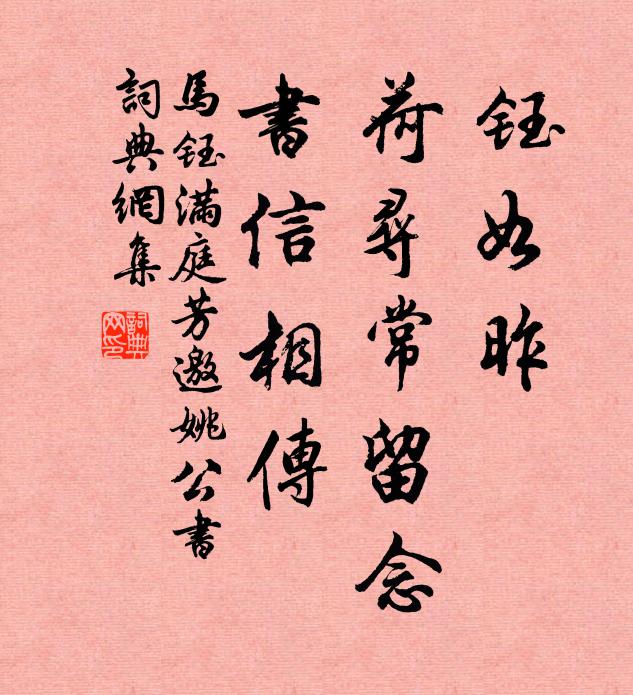 鈺如昨
荷尋常留念
書信相傳
馬鈺滿庭芳邀姚公書
詞典網集
詞典
网印